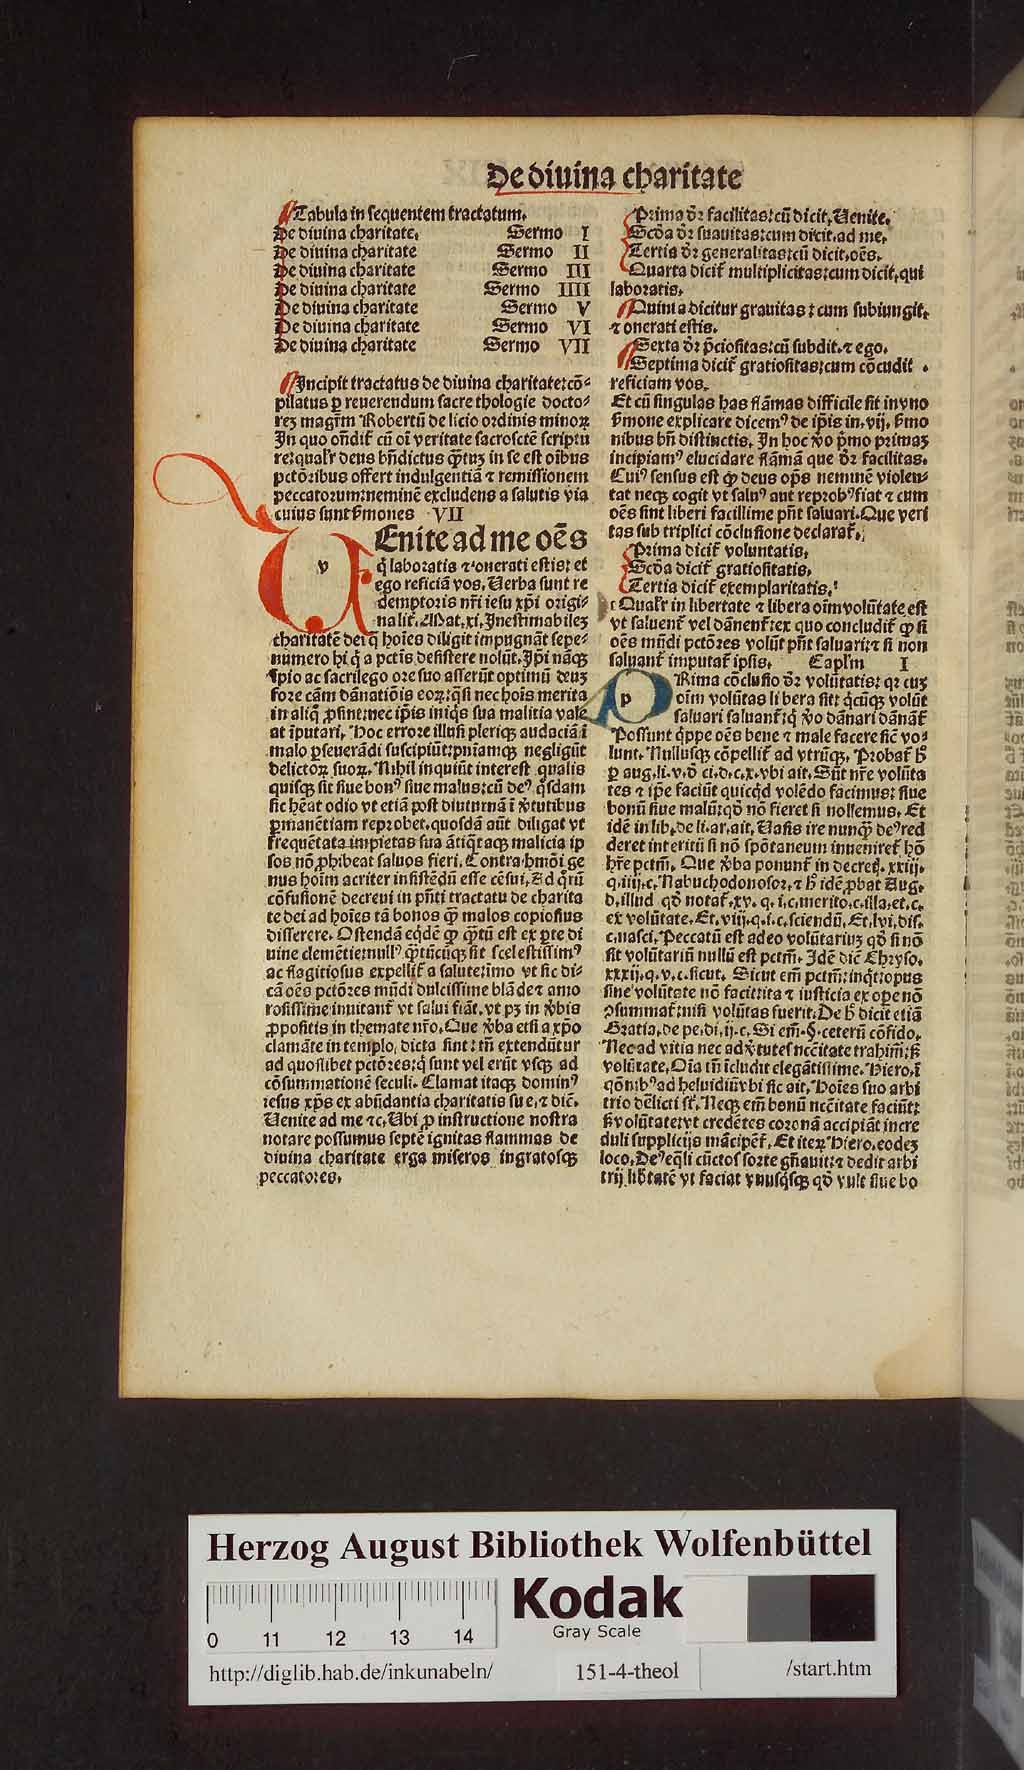 De diuina charitate
Tabula in sequentem tractatum.
De diuina charitate. Sermo I
De diuina charitate Sermo II
De diuina charitate Sermo III
De diuina charitate Sermo IIII
De diuina charitate Sermo V
De diuina charitate Sermo VI
De diuina charitate Sermo VII
Incipit tractatus de diuina charitate: cō-
pilatus ꝑ reuerendum sacre thologie docto-
reꝫ magr̄m Robertū de licio ordinis minoꝝ
In quo on̄dit᷑ cū oī veritate sacroscte̅ scriptu
re: qualr̄ deus bn̄dictus qͣ̄tuꝫ in se est oībus
pctōribus offert indulgentiā ⁊ remissionem
peccatorum: neminē excludens a salutis via
cuius sunt ẜmones VII
VEnite ad me oēs
q̇ laboratis ⁊ onerati estis: et
ego reficiā vos. Verba sunt re
demptoris nr̄i iesu xp̄i origi-
nalit᷑. Mat. xi. Inestimabileꝫ
charitatē dei q̇ hoīes diligit impugnāt sepe-
numero hi q̇ a pctīs desistere nolūt. Ip̄i nāqꝫ
īpio ac sacrilego ore suo asserūt optimū deuꝫ
fore cām dānatiōis eoꝝ: q̇si nec hoīs merita
in aliq̇ ꝓsint: nec ip̄is iniq̇s sua malitia vale
at īputari. Hoc errore illusi pleriqꝫ audaciā ī
malo ꝑseuerādi suscipiūt: pn̄iamqꝫ negligūt
delictoꝝ suoꝝ. Nihil inquiūt interest qualis
quisqꝫ sit siue bonꝰ siue malus: cū deꝰ q̇sdam
sic hēat odio vt etiā post diuturnā ī v̄tutibus
ꝑmanētiam reprobet. quosdā aūt diligat vt
frequētata impietas sua ātiq̇taqꝫ malicia ip
sos nō ꝓhibeat saluos fieri. Contra hmōi ge
nus hoīm acriter insistēdū esse cēsui. Ad q̇rū
cōfusionē decreui in pn̄ti tractatu de charita
te dei ad hoīes tā bonos qͣ̄ malos copiosius
disserere. Ostendā eqdē ꝙ qͣ̄tū est ex ꝑte di
uine clemētie: nullꝰ qͣ̄tūcūqꝫ sit scelestissimꝰ
ac flagitiosus expellit᷑ a salute: imo vt sic di-
cā oēs pctōres mūdi dulcissime blāde ⁊ amo
rosissime inuitant᷑ vt salui fiāt. vt pꝫ in v̄bis
ꝓpositis in themate nr̄o. Que v̄ba etsi a xp̄o
clamāte in templo, dicta sint: tn̄ extendūtur
ad quoslibet pctōres: q̇ sunt vel erūt vsqꝫ ad
cōsummationē seculi. Clamat itaqꝫ dominꝰ
iesus xp̄s ex abūdantia charitatis sue, ⁊ dic̄.
Venite ad me ⁊c. Vbi ꝑ instructione nostra
notare possumus septē ignitas flammas de
diuina charitate erga miseros ingratosqꝫ
peccatores.
Prima dr̄ facilitas: cū dicit, Venite.
Scd̄a dr̄ suauitas: cum dicit. ad me.
Tertia dr̄ generalitas: cū dicit. oēs.
Quarta dicit᷑ multiplicitas: cum dicit, qui
laboratis.
Quinta dicitur grauitas: cum subiungit.
⁊ onerati estis.
Sexta dr̄ p̄ciositas: cū subdit. ⁊ ego.
Septima dicit᷑ gratiositas: cum cōcudit .
reficiam vos.
Et cū singulas has flāmas difficile sit in vno
ẜmone explicare dicemꝰ de ip̄is in. vij. ẜmo
nibus bn̄ distinctis. In hoc v̊o p̄mo primaꝫ
incipiamꝰ elucidare flāmā que dr̄ facilitas.
Cuiꝰ sensus est ꝙ deus op̄s neminē violen-
tat neqꝫ cogit vt saluꝰ aut reprobꝰ fiat ⁊ cum
oēs sint liberi facillime pn̄t saluari. Que veri
tas sub triplici cōclusione declarat᷑.
Prima dicit᷑ voluntatis.
Scd̄a dicit᷑ gratiositatis.
Tertia dicit᷑ exemplaritatis.
Qualr̄ in libertate ⁊ libera oīm volūtate est
vt saluent᷑ vel dānent᷑: ex quo concludit᷑ ꝙ si
oēs mūdi pctōres volūt pn̄t saluari: ⁊ si non
saluant᷑ imputat᷑ ipsis. Caplm̄ I
PRima cōclusio dr̄ volūtatis: qꝛ cuꝫ
oīm volūtas libera sit: q̇cūqꝫ volūt
saluari saluant᷑: q̇ v̊o dānari dānāt᷑
Possunt q̇ppe oēs bene ⁊ male facere sic̄ vo-
lunt. Nullusqꝫ cōpellit᷑ ad vtrūqꝫ. Probat᷑ h̄
ꝑ aug. li. v. d̄ ci. d. c. x. vbi ait. Sūt nr̄e volūta
tes ⁊ ip̄e faciūt quicq̇d volēdo facimus: siue
bonū siue malū: qd̄ nō fieret si nollemus. Et
idē in lib. de li. ar. ait. Vasis ire nunqͣ̄ deꝰ red
deret interitū si nō spōtaneum inueniret᷑ hō
hr̄e pctm̄. Que v̄ba ponunt᷑ in decret. xxiij.
q. iiij. c. Nabuchodonosor. ⁊ h̄ idē ꝓbat Aug.
d. illud qd̄ notat᷑. xv. q. i. c. merito. c. illa. et. c.
ex volūtate. Et. viij. q. i. c. sciendū. Et. lvi. dis.
c. nasci. Peccatū est adeo volūtariuꝫ qd̄ si nō
sit volūtariū nullū est pctm̄. Idē dic̄ Chryso.
xxxij. q. v. c. sicut. Sicut em̄ pctm̄: inq̇t: opus
sine volūtate nō facit: ita ⁊ iusticia ex oꝑe nō
ꝯsummat᷑: nisi volūtas fuerit. De h̄ dicit etiā
Gratia. de pe. di. ij. c. Si em̄. §. ceterū cōfido.
Nec ad vitia nec ad v̄tutes nccītate trahim̄: ẜ
volūtate. Oīa tn̄ īcludit elegātissime. Hiero. ī
qōnibꝰ ad heluidiū vbi sic ait. Hoīes suo arbi
trio dēlicti sr̄. Neqꝫ em̄ bonū nccītate faciūt:
ẜ volūtate: vt credētes coronā accipiāt incre
duli supplicijs mācipet᷑. Et iteꝝ Hiero. eodeꝫ
loco. Deꝰ eq̇li cūctos sorte gn̄auit: ⁊ dedit arbi
trij libtatē vt faciat vnusq̇sqꝫ qd̄ vult siue bo
Herzog August Bibliothek Wolfenbüttel
0 11 12 13 14
Kodak
Gray Scale
http://diglib.hab.de/inkunabeln/
151-4-theol
/start.htm